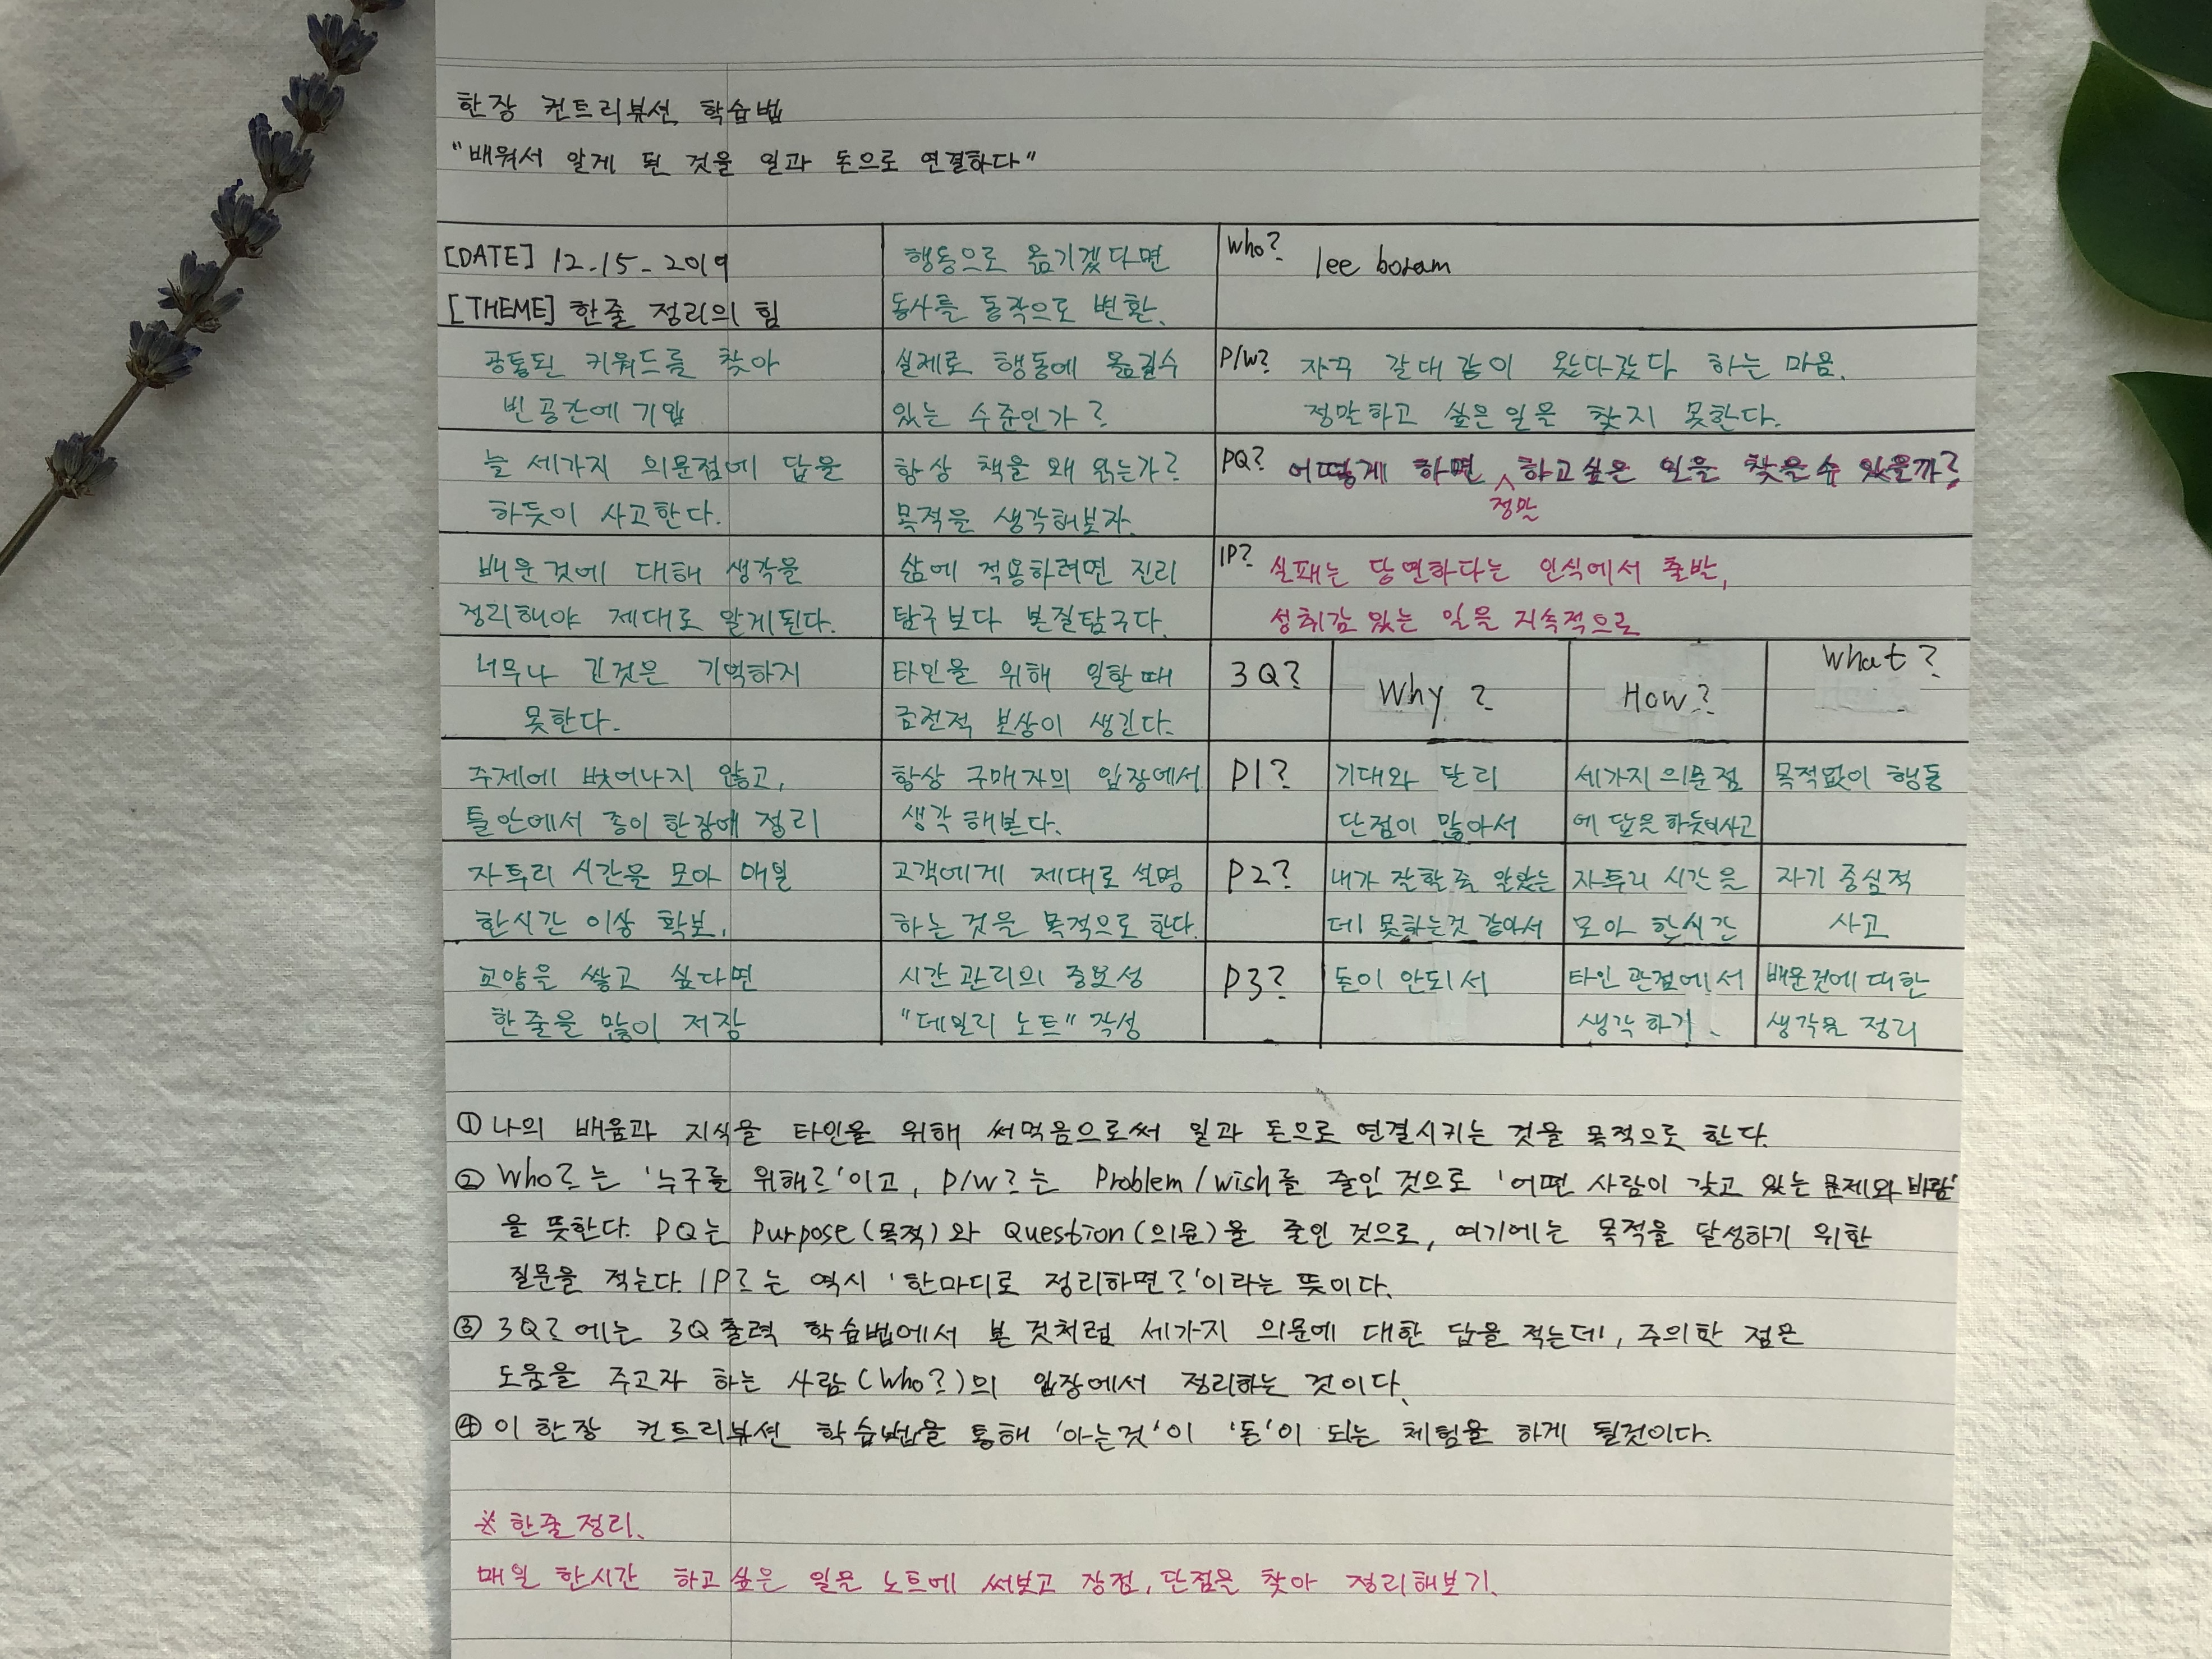 한장 컨트리뷰션 학습법
"배워서 알게 된 것을 일과 돈으로 연결하다"
[DATE] 12.15-2019
[THEME] 한줄 정리의 힘
행동으로 옮기겠다면
동사를 동작으로 변환.
Who? lee boram
공통된 키워드를 찾아
빈공간에 기입
실제로 행동에 옮길수
있는 수준인가?
P/W? 자꾸 갈대같이 왔다갔다 하는 마음.
정말하고 싶은일을 찾지 못한다.
늘 세가지 의문점에 답을
하듯이 사고한다.
항상 책을 왜 읽는가?
목적을 생각해보자.
PQ? 어떻게 하면 하고싶은 일을 찾을수 있을까?
정말
배운것에 대해 생각을
정리해야 제대로 알게된다.
삶에 적용하려면 진리
탐구보다 본질탐구다.
IP? 실패는 당연하다는 인식에서 출발,
성취감 있는 일을 지속적으로
너무나 긴것은 기억하지
못한다.
타인을 위해 일할때
금전적 보상이 생긴다.
3Q?
Why?
How?
What?
주제에 벗어나지 않고,
틀안에서 종이 한장에 정리
항상 구매자의 입장에서
생각해본다.
P1?
기대와 달리
단점이 많아서
세가지 의문점
에 답을 하듯이사고
목적없이 행동
자투리 시간을 모아 매일
한시간 이상 확보.
고객에게 제대로 설명
하는 것을 목적으로 한다.
P2?
내가 잘할줄 알았는
데 못하는것 같아서
자투리 시간을
모아 한시간
자기 중심적
사고
교양을 쌓고 싶다면
한줄을 많이 저장
시간관리의 중요성
"데일리 노트" 작성
P3?
돈이 안되서
타인 관점에서
생각하기.
배운것에 대한
생각을 정리
① 나의 배움과 지식을 타인을 위해 써먹음으로써 일과 돈으로 연결시키는 것을 목적으로 한다.
② Who?는 '누구를 위해?'이고, P/W?는 Problem/wish를 줄인 것으로 '어떤 사람이 갖고 있는 문제와 바람'
을 뜻한다. PQ는 Purpose(목적)와 Question(의문)을 줄인 것으로, 여기에는 목적을 달성하기 위한
질문을 적는다. IP?는 역시 '한마디로 정리하면?'이라는 뜻이다.
③ 3Q?에는 3Q출력 학습법에서 본 것처럼 세가지 의문에 대한 답을 적는데, 주의한 점은
도움을 주고자 하는 사람(Who?)의 입장에서 정리하는 것이다.
④ 이 한장 컨트리뷰션 학습법을 통해 '아는것'이 '돈'이 되는 체험을 하게 될것이다.
※ 한줄정리.
매일 한시간 하고싶은 일을 노트에 써보고 장점, 단점을 찾아 정리해보기.